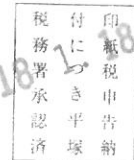 印紙税申告納
付につき平塚
税務署承認済
18.1.18